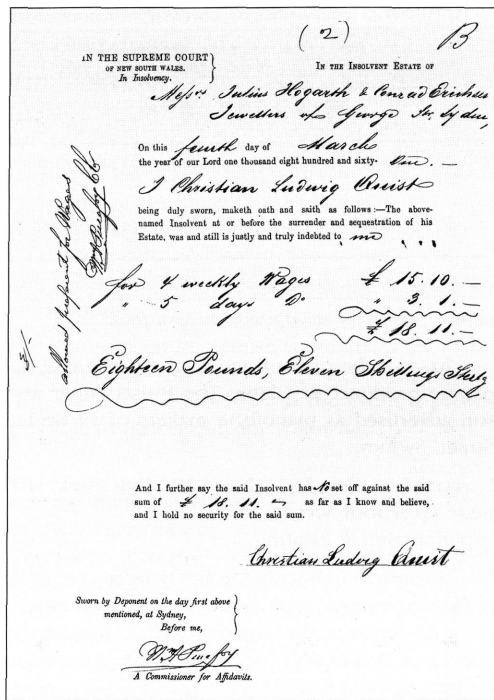 (2) B
IN THE SUPREME COURT
OF NEW SOUTH WALES.
In Insolvency.
IN THE INSOLVENT ESTATE OF
Messrs Julius Hogarth & Conrad Erichsen
Jewellers of George Str. Sydney
On this fourth day of March
the year of our Lord one thousand eight hundred and sixty- One. —
I Christian Ludwig Qwist
being duly sworn, maketh oath and saith as follows :—The above-
named Insolvent at or before the surrender and sequestration of his
Estate, was and still is justly and truly indebted to me
for 4 weekly Wages £ 15.10.—
" — 5 days Do " 3.1.—
£ 18.11.—
Eighteen Pounds, Eleven Shillings
allowed preferent for Wages
And I further say the said Insolvent has No set off against the said
sum of £ 18.11. — as far as I know and believe,
and I hold no security for the said sum.
Christian Ludwig Qwist
Sworn by Deponent on the day first above
mentioned, at Sydney,
Before me,
A Commissioner for Affidavits.